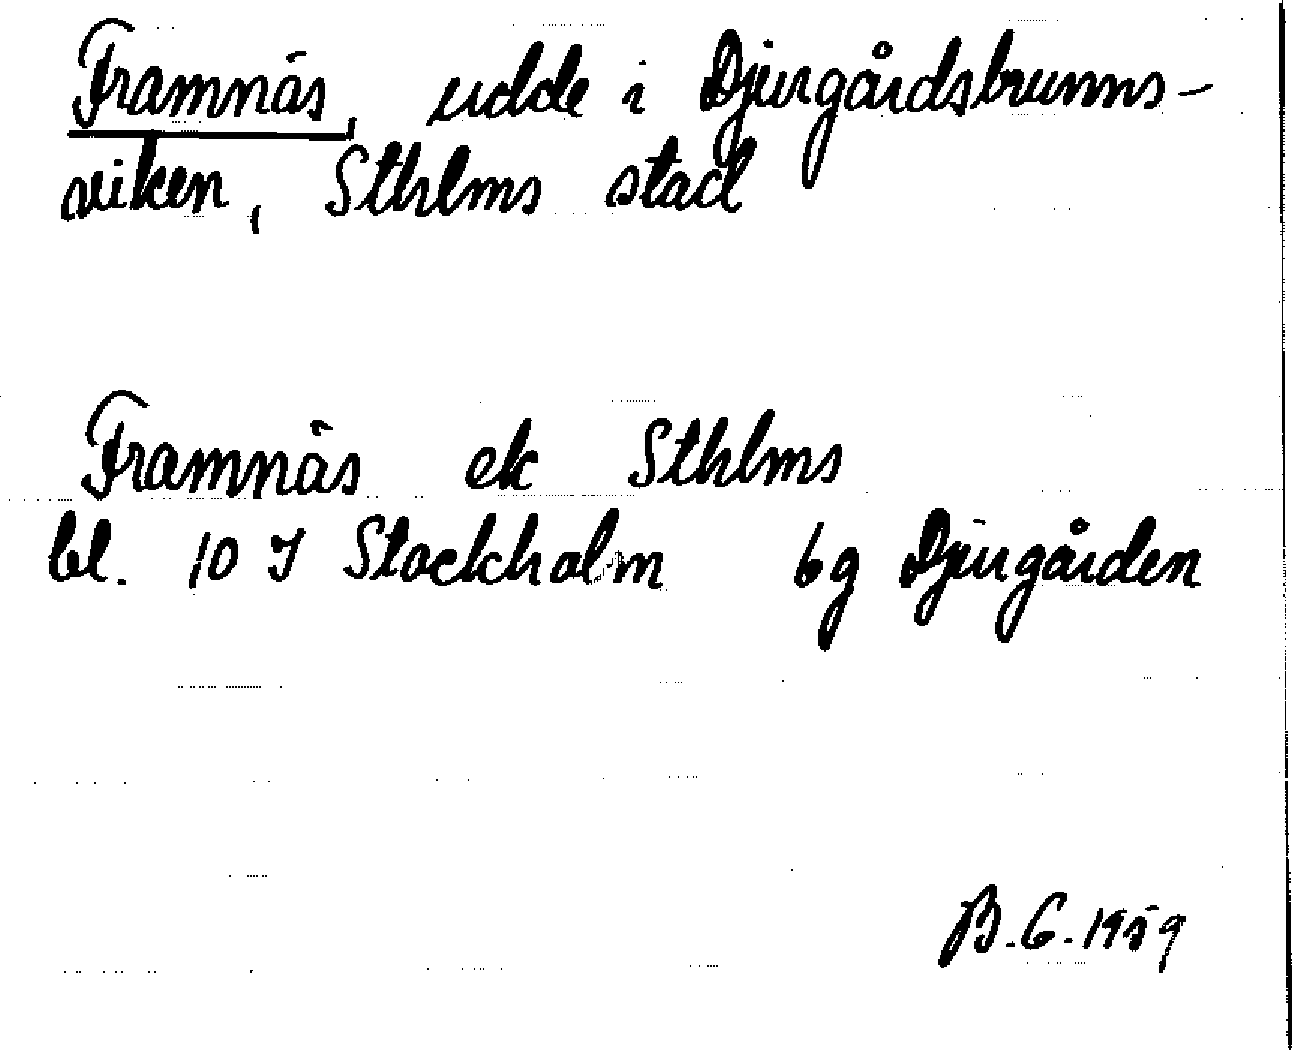 Framnäs, udde i Djurgårdsbrunns-
viken, Sthlms stad
Framnäs ek Sthlms
bl. 10 I Stockholm 6g Djurgården
B.G.1959